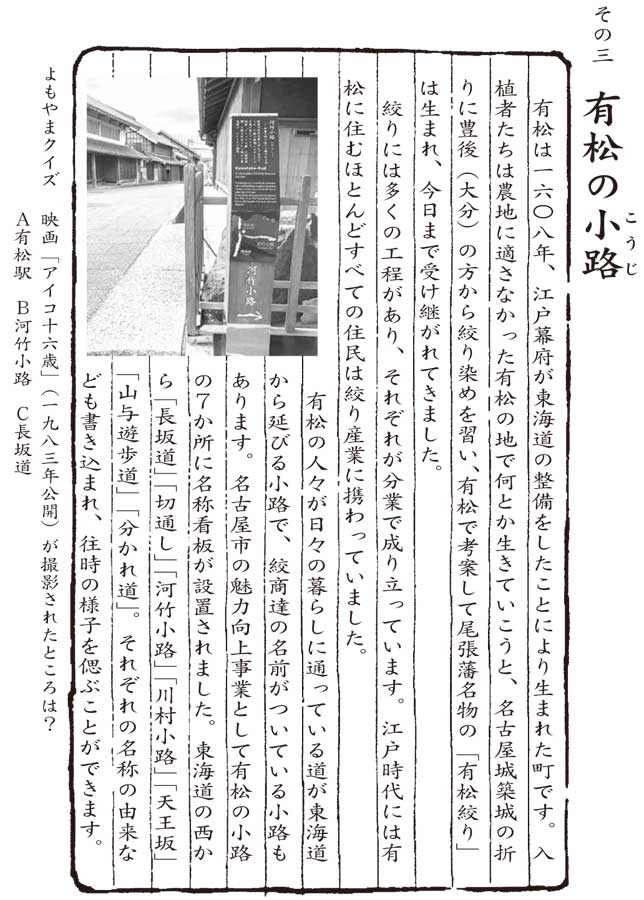 その三
有松の小路
こうじ
有松は一六〇八年、江戸幕府が東海道の整備をしたことにより生まれた町です。入
植者たちは農地に適さなかった有松の地で何とか生きていこうと、名古屋城築城の折
りに豊後（大分）の方から絞り染めを習い、有松で考案して尾張藩名物の「有松絞り」
は生まれ、今日まで受け継がれてきました。
絞りには多くの工程があり、それぞれが分業で成り立っています。江戸時代には有
松に住むほとんどすべての住民は絞り産業に携わっていました。
有松の人々が日々の暮らしに通っている道が東海道
から延びる小路で、絞商達の名前がついている小路も
あります。名古屋市の魅力向上事業として有松の小路
の７か所に名称看板が設置されました。東海道の西か
ら「長坂道」「切通し」「河竹小路」「川村小路」「天王坂」
「山与遊歩道」「分かれ道」。それぞれの名称の由来な
ども書き込まれ、往時の様子を偲ぶことができます。
河竹小路
Kawatake-Koji
河竹小路
よもやまクイズ
映画「アイコ十六歳」（一九八三年公開）が撮影されたところは？
Ａ有松駅　Ｂ河竹小路　Ｃ長坂道